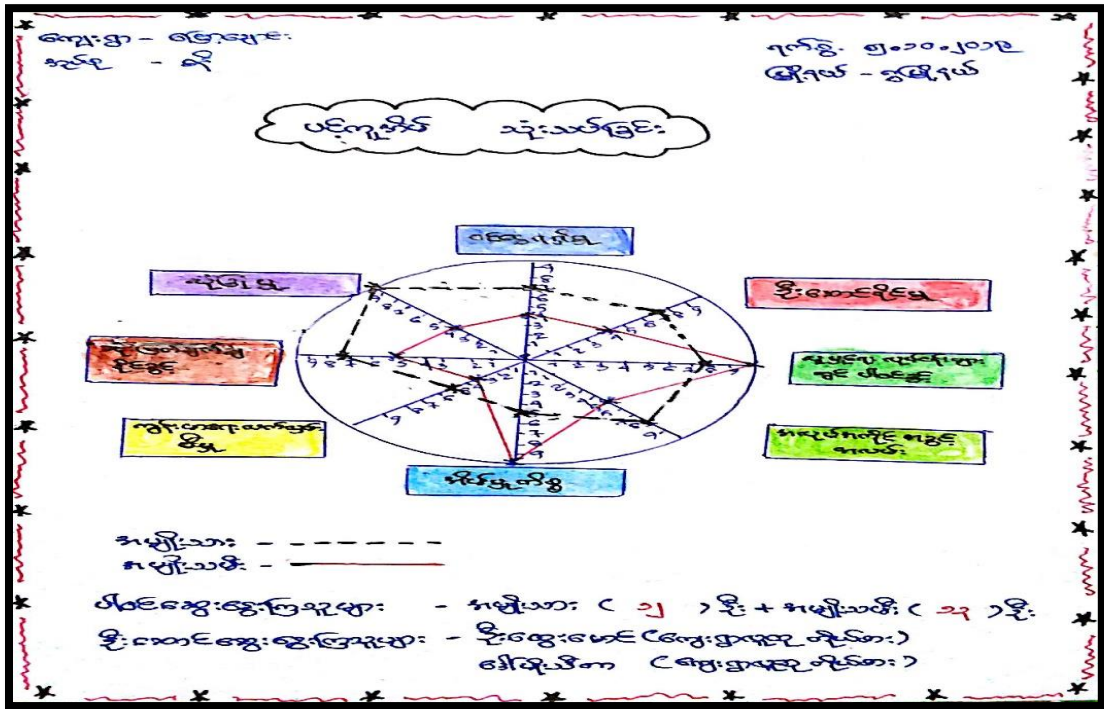 ကျေးရွာ - မြော့ချောင်း
အုပ်စု - ရှိ
ရက်စွဲ. ၅.၁၀.၂၀၁၉
မြို့နယ် - ရွှမြို့နယ်
ပင့်ကူအိမ် သုံးသပ်ခြင်း
ဝင်ငွေရရှိမှု
သုံးဖြုန်းမှု
ဦးဆောင်နိုင်မှု
ဆုံးဖြတ်ချက်ချ
နိုင်ခွင့်
လူမှုရေး လုပ်ငန်းများ
တွင် ပါဝင်ခွင့်
ကျန်းမာရေးစောင့်ရှောက်
မှု
အလုပ်အကိုင် အခွင့်
အလမ်း
အိမ်မှုကိစ္စ
အမျိုးသား -
အမျိုးသမီး -
ပါဝင်ဆွေးနွေးကြသူများ - အမျိုးသား ( ၁၂ ) ဦး + အမျိုးသမီး ( ၁၃ ) ဦး
ဦးဆောင်ဆွေးနွေးကြသူများ - ဦးထွေးမောင် (ကျေးရွာလူထု ကိုယ်စား)
(ကျေးရွာလူထု ကိုယ်စား)